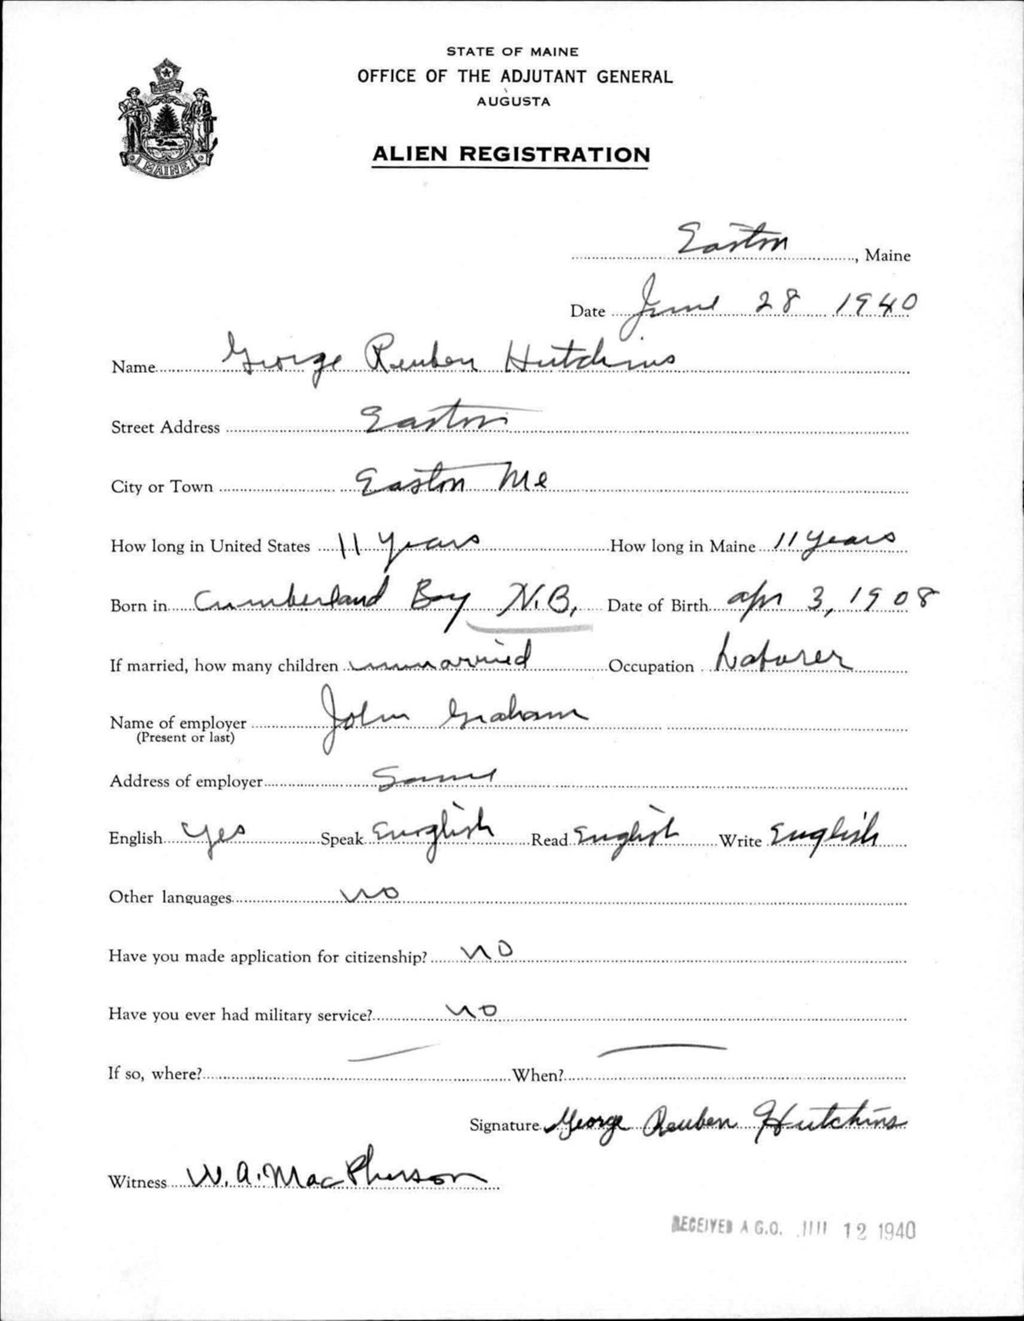 STATE OF MAINE
OFFICE OF THE ADJUTANT GENERAL
AUGUSTA
ALIEN REGISTRATION
MAINE
Easton, Maine
Date June 28 1940
Name George Reuben Hutchins
Street Address Easton
City or Town Easton Me
How long in United States 11 years How long in Maine 11 years
Born in Cumberland Bay N.B. Date of Birth Apr 3, 1908
If married, how many children unmarried Occupation Laborer
Name of employer John Graham
(Present or last)
Address of employer Same
English Yes Speak English Read English Write English
Other languages no
Have you made application for citizenship? no
Have you ever had military service? no
If so, where? — When? —
Signature George Reuben Hutchins
Witness W. A. MacPherson
RECEIVED A.G.O. 12 1940